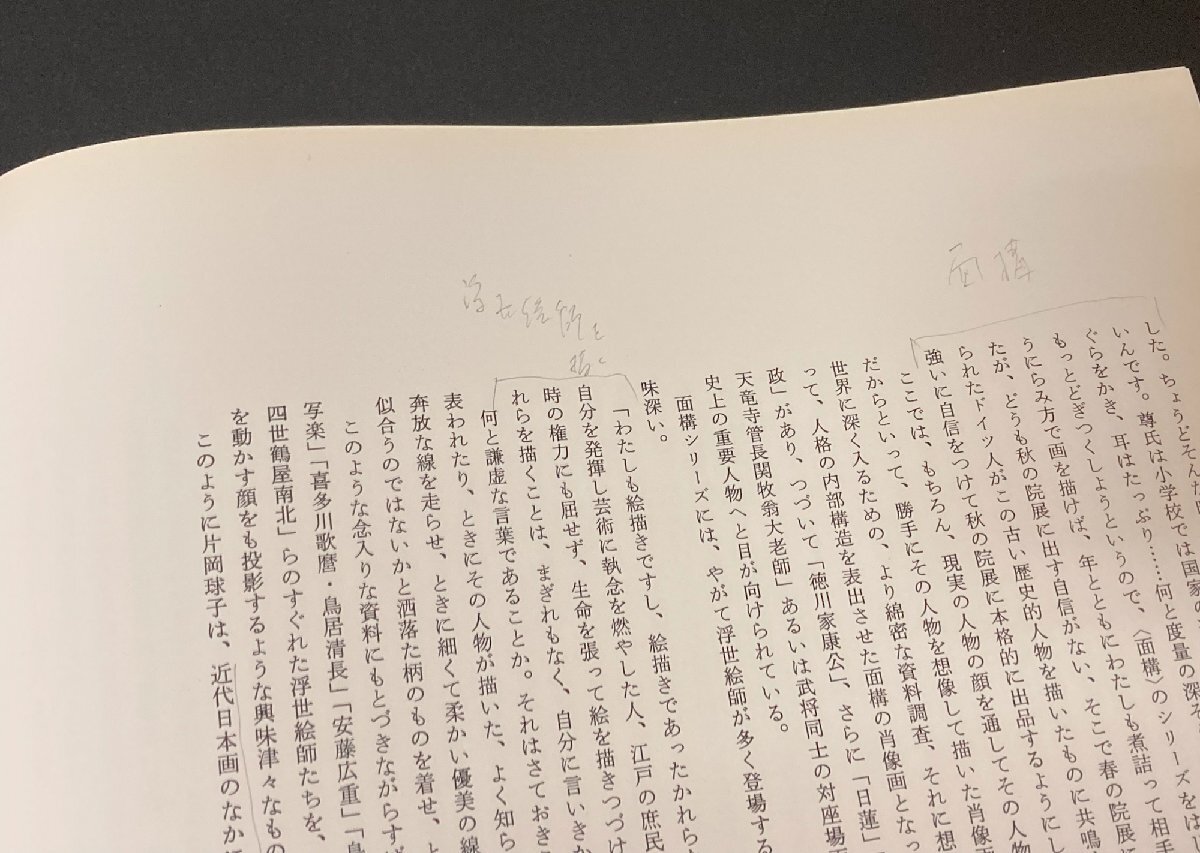 面構
浮世絵師を
描く
した。ちょうどそんな
いんです。尊氏は小学校では国家の
ぐらをかき、耳はたっぷり……何と度量の深そ
もっとどぎつくしようというので、〈面構〉のシリーズをは
うにらみ方で画を描けば、年とともにわたしも煮詰って相手
たが、どうも秋の院展に出す自信がない、そこで春の院展に
られたドイツ人がこの古い歴史的人物を描いたものに共鳴
強いに自信をつけて秋の院展に本格的に出品するようにし
ここでは、もちろん、現実の人物の顔を通してその人物
だからといって、勝手にその人物を想像して描いた肖像画
世界に深く入るための、より綿密な資料調査、それに想
って、人格の内部構造を表出させた面構の肖像画となっ
政」があり、つづいて「徳川家康公」、さらに「日蓮」
天竜寺管長関牧翁大老師」あるいは武将同士の対座場面
史上の重要人物へと目が向けられている。
面構シリーズには、やがて浮世絵師が多く登場する
味深い。
「わたしも絵描きですし、絵描きであったかれら
自分を発揮し芸術に執念を燃やした人、江戸の庶民
時の権力にも屈せず、生命を張って絵を描きつづけ
れらを描くことは、まぎれもなく、自分に言いきか
何と謙虚な言葉であることか。それはさておき
表われたり、ときにその人物が描いた、よく知ら
奔放な線を走らせ、ときに細くて柔かい優美の線
似合うのではないかと洒落た柄のものを着せ、と
このような念入りな資料にもとづきながらす
写楽」「喜多川歌麿・鳥居清長」「安藤広重」「鳥
四世鶴屋南北」らのすぐれた浮世絵師たちを、
を動かす顔をも投影するような興味津々なもの
このように片岡球子は、近代日本画のなかに